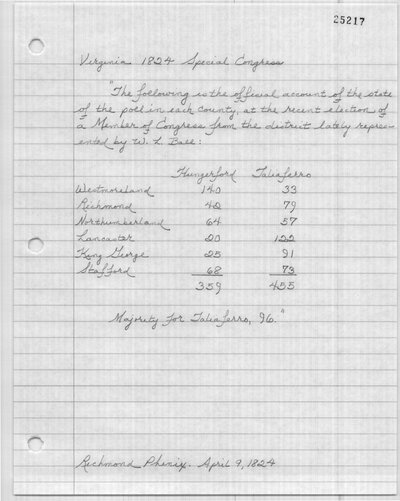 25217
Virginia 1824 Special Congress
"The following is the official account of the state
of the poll in each county, at the recent election of
a Member of Congress from the district lately repres-
ented by W. L. Ball:
Hungerford Taliaferro
Westmoreland 140 33
Richmond 42 79
Northumberland 64 57
Lancaster 20 122
King George 25 91
Stafford 68 73
359 455
Majority for Taliaferro, 96."
Richmond Phenix. April 9, 1824